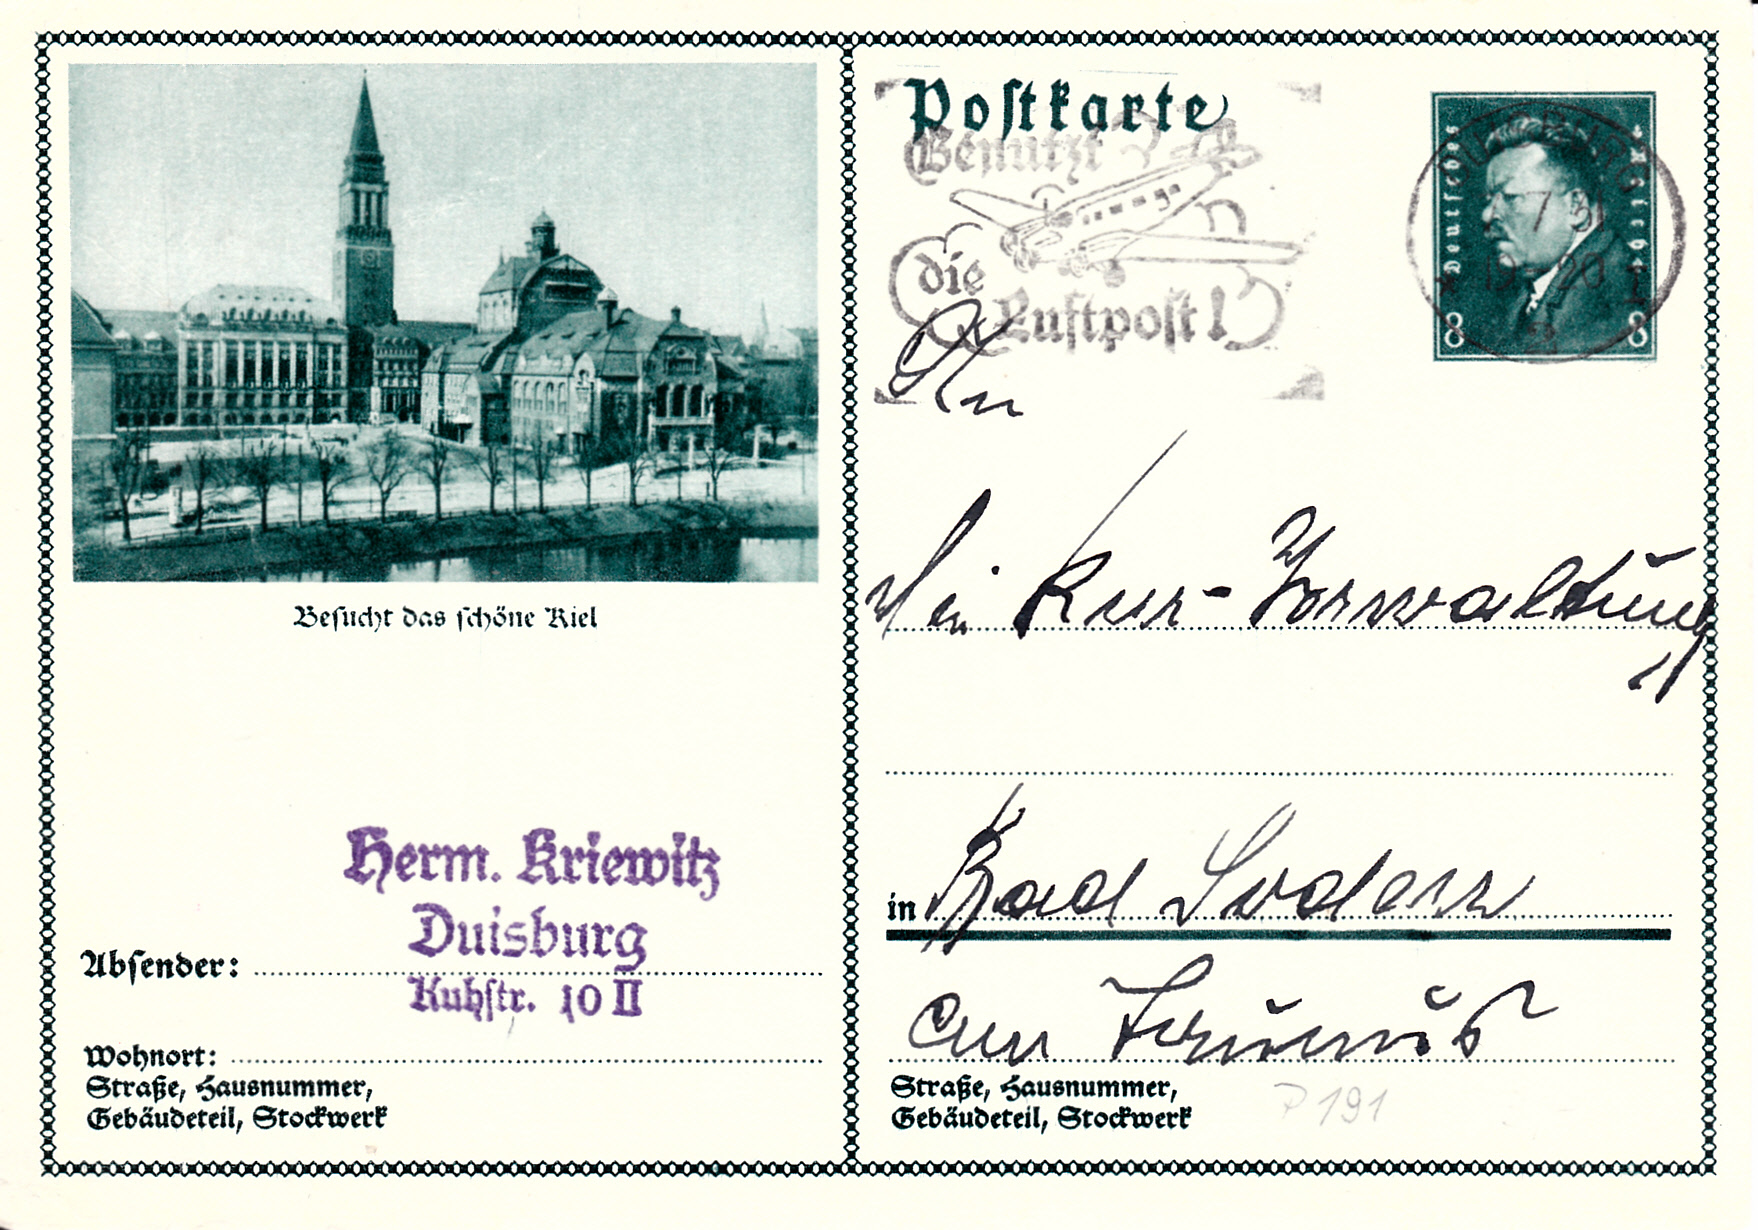 Besucht das schöne Kiel
Herm. Kriewitz
Duisburg
Kuhstr. 10 II
Absender:
Wohnort:
Straße, Hausnummer,
Gebäudeteil, Stockwerk
Postkarte
Benützt
die
Luftpost!
Deutsches Reich
8 8
7 31
19 - 20
An
die Kur-Verwaltung
in Bad Soden
am Taunus
Straße, Hausnummer,
Gebäudeteil, Stockwerk
P 191